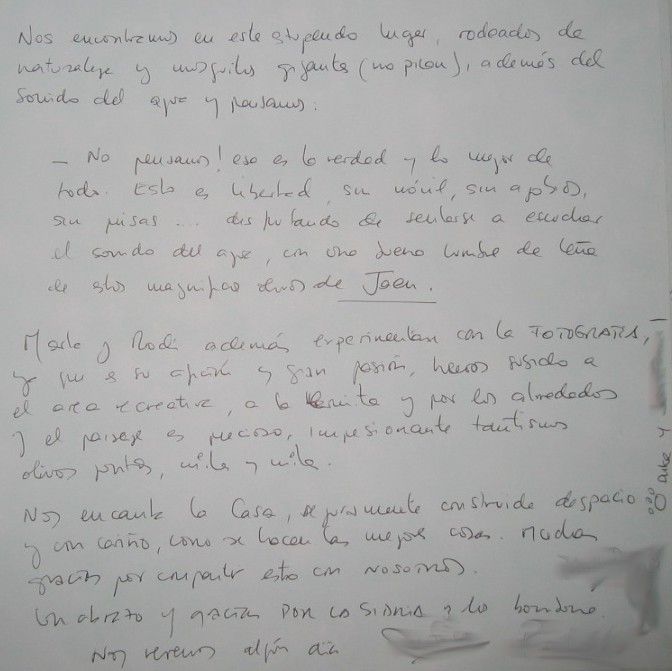 Nos encontramos en este stupendo lugar, rodeados de
naturaleza y mosquitos gigantes (no pican), además del
sonido del agua y pensamos:
- No pensamos! eso es la verdad y lo mejor de
todo. Esto es libertad, sin móvil, sin agobios,
sin prisas ... disfrutando de sentarse a escuchar
el sonido del agua, con una buena lumbre de leña
de stos magnificos olivos de Jaen.
y Rodi además experimentan con la FOTOGRAFIA,
ya que es su afición y gran pasión, hemos subido a
el area recreativa, a la Ermita y por los alrededores
y el paisaje es precioso, impresionante tantisimos
olivos juntos, mila y mila.
Nos encanta la Casa, seguramente construida despacio
y con cariño, como se hacen las mejores cosas. Muchas
gracias por compartir esto con nosotros.
Un abrazo y gracias POR LA SIDRIA y lo
Nos veremos algún día
y